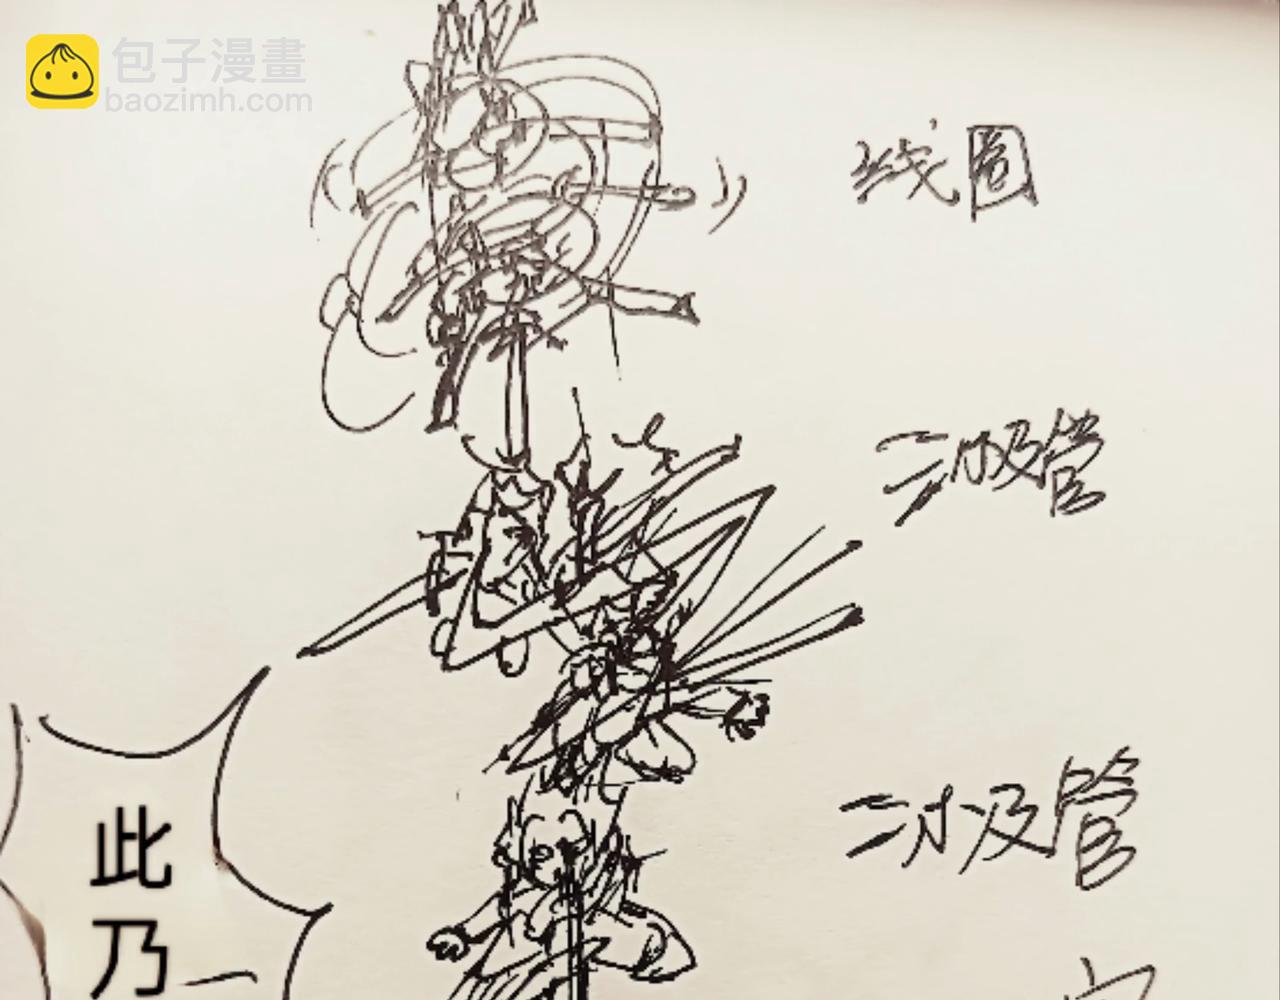 包子漫畫
baozimh.com
线圈
二极管
二极管
此
乃